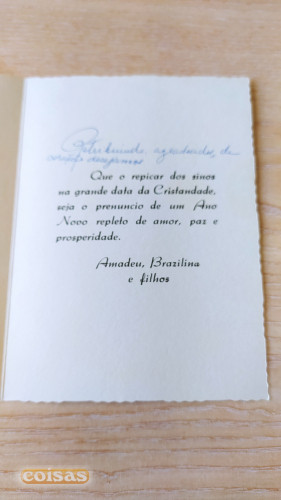 agradecidos, de
coração desejamos
Que o repicar dos sinos
na grande data da Cristandade,
seja o prenuncio de um Ano
Novo repleto de amor, paz e
prosperidade.
Amadeu, Brazilina
e filhos
coisas